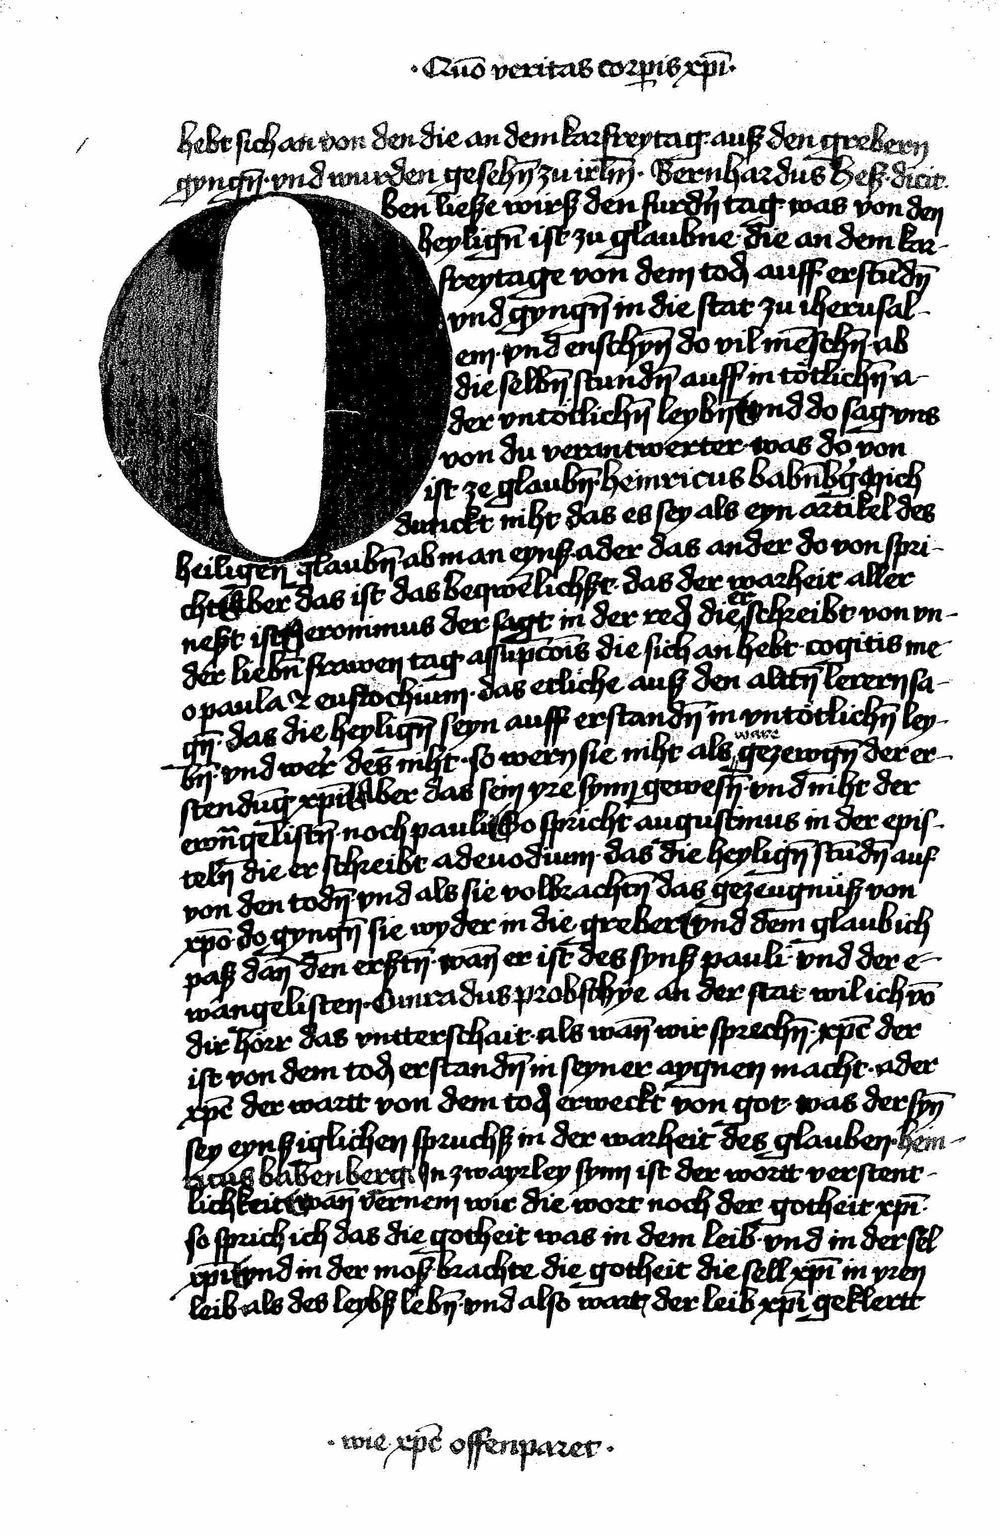 · Quō veritas corꝑis xp̄i ·
hebt sich an von den die an dem karfreytag · auß den grebern
gyngn̄ · vnd wurden gesehn̄ zu irl̄m · Bernhardus heß dicit
Oben ließe wirß den furdn̄ tag · was von den
heylign̄ ist zu glaubne · die an dem kar-
freytage von dem tod auff erstūdn̄
vnd gyngn̄ in die stat zu iherusal-
em · vnd enschyn̄ do vil mēschn̄ · ab
die selbn̄ stundn̄ auff in tötlichn̄ a-
der vntötlichn̄ leybn̄ vnd do sag vns
von du verantwerter · was do von
ist ze glaubn̄ · heinricus babn̄bḡ Mich
dunckt niht das es sey als eyn artikel des
heiligen glaubn̄ · ab man eynß · ader das ander do von spri-
cht Aber das ist das beqwēlichst · das der warheit aller
neßt ist Jeronimus der sagt in der red die er schreibt von vn-
der liebn̄ frawen tag · assūpcōis die sich an hebt · cogitis me
o paula ⁊ eustochium · das etliche auß den altn̄ lerern sa-
gn̄ · das die heylign̄ seyn auff erstandn̄ in vntötlichn̄ ley-
bn̄ · vnd wer des niht · so wern sie niht als ware gezewgn̄ der er-
stendūg xp̄i Aber das sein yre synn gewesn̄ · vnd niht der
ewāngelistn̄ · noch pauli So spricht augustinus in der epis-
teln̄ die er schreibt ad euodium · das die heylign̄ stūdn̄ auf
von den todn̄ · vnd als sie volbrachtn̄ das gezeugnüß von
xp̄o · do gyngn̄ sie wyder in die greber vnd dem glaub ich
paß dan̄ den erstn̄ · wan̄ er ist des synß pauli · vnd der e-
wangelisten · Cunradus probsthye an der stat wil ich vō
dir hörr das vntterschait · als wan̄ wir sprechn̄ · xp̄c der
ist von dem tod erstandn̄ in seyner aygnen macht · ader
xp̄c der wartt von dem tod erweckt von got · was der syn̄
sey eynß iglichen spruchß in der warheit des glauben · hein-
ricus babenberg In zwayrley synn ist der wortt verstent-
lichkeit wan̄ vernem wir die wort noch der gotheit xp̄i ·
so sprich ich das die gotheit was in dem leib · vnd in der sel
xp̄i vnd in der moß brachte die gotheit die sell xp̄i in yren
leib · als des leybß lebn̄ · vnd also wartt der leib xp̄i geklertt
· wie xp̄c offenparet ·